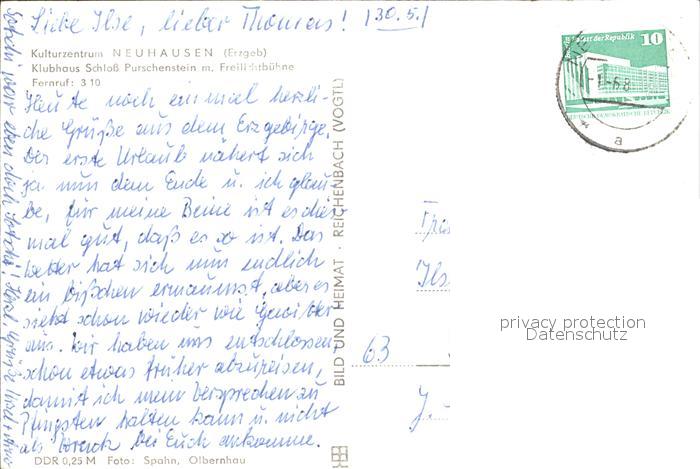 Liebe Ilse, lieber Thomas! (30.5.)
Kulturzentrum NEUHAUSEN (Erzgeb)
Klubhaus Schloß Purschenstein m. Freilichtbühne
Fernruf: 3 10
Heute noch einmal herzli-
che Grüße aus dem Erzgebirge.
Der erste Urlaub nähert sich
ja nun dem Ende u. ich glau-
be, für meine Beine ist es dies-
mal gut, daß es so ist. Das
Wetter hat sich nun endlich
ein bißchen ermannt, aber es
sieht schon wieder wie Gewitter
aus. Wir haben uns entschlossen,
schon etwas früher abzureisen,
damit ich mein Versprechen zu
Pfingsten halten kann u. nicht
als Wrack bei Euch ankomme.
DDR 0,25 M Foto: Spahn, Olbernhau
BILD UND HEIMAT · REICHENBACH (VOGTL)
Palast der Republik
10
DEUTSCHE DEMOKRATISCHE REPUBLIK
a
Ils
63
privacy protection
Datenschutz